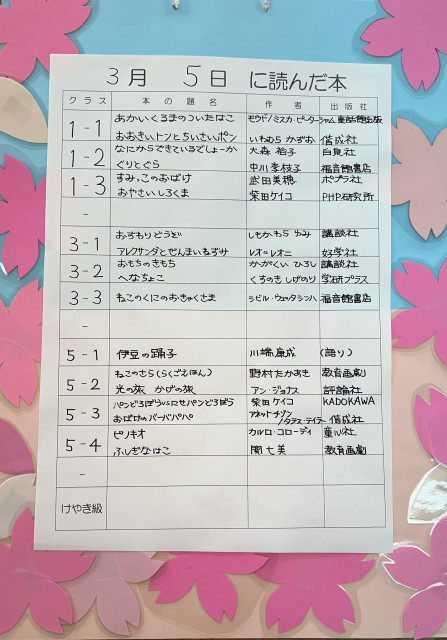 3月 5日 に読んだ本
クラス 本の題名 作者 出版社
1-1 あかいくるまのついたはこ モウド/ミスカ・ピーターシャム 童話館出版
おおきいトンとちいさいポン いわむら かずお 偕成社
1-2 なにからできているでしょーか 大森 裕子 白泉社
ぐりとぐら 中川李枝子 福音館書店
1-3 すみっこのおばけ 武田美穂 ポプラ社
おやさいしろくま 柴田ケイコ PHP研究所
-
3-1 おすもうどうぶ しもかわら ゆみ 講談社
アレクサンダとぜんまいねずみ レオ=レオニ 好学社
3-2 おもちのきもち かがくい ひろし 講談社
へなちょこ くすのき しげのり 学研プラス
3-3 ねこのくにのおきゃくさま シビル・ウェッタシンハ 福音館書店
-
5-1 伊豆の踊子 川端康成 (語り)
5-2 ねこのさら(らくごえほん) 野村たかあき 教育画劇
光の旅 かげの旅 アン・ジョナス 評論社
5-3 パンどろぼうvsにせパンどろぼう 柴田ケイコ KADOKAWA
おばけのバーバパパ アネット・チゾン
/タラス・テイラー 偕成社
5-4 ピノキオ カルロ・コローディ 童心社
ふしぎなはこ 関七美 教育画劇
-
けやき級